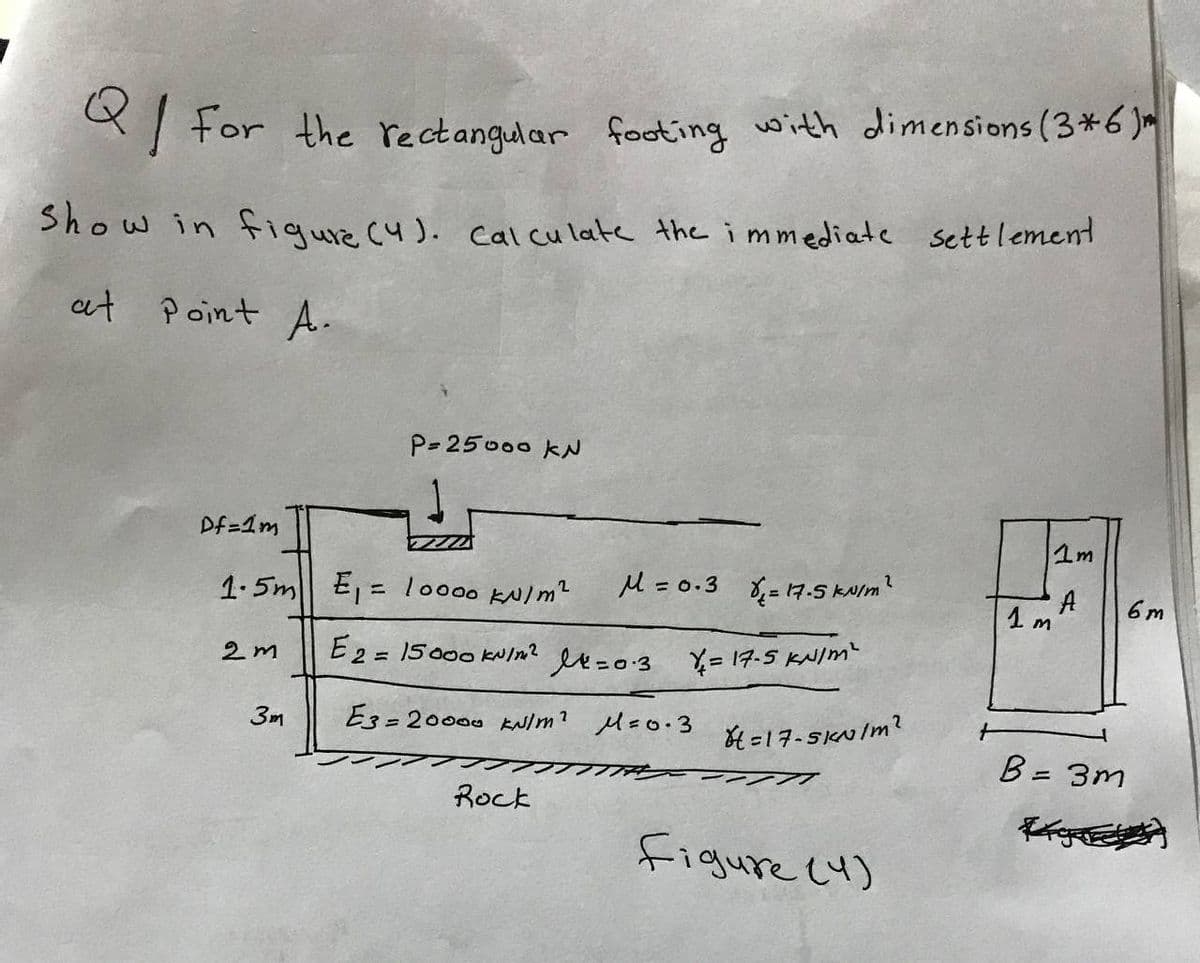 Q/ For the rectangular footing with dimensions (3*6)m
show in figure (4). Calculate the immediate settlement
at Point A.
P=25000 kN
Df=1m
1.5m E₁ = 10000 kN/m² μ = 0.3 γt = 17.5 kN/m²
2m E2 = 15000 kN/m² μ=0.3 γt = 17.5 kN/m²
3m E3 = 20000 kN/m² μ=0.3 γt=17.5kN/m²
Rock
Figure (4)
1m
1m A 6m
B = 3m